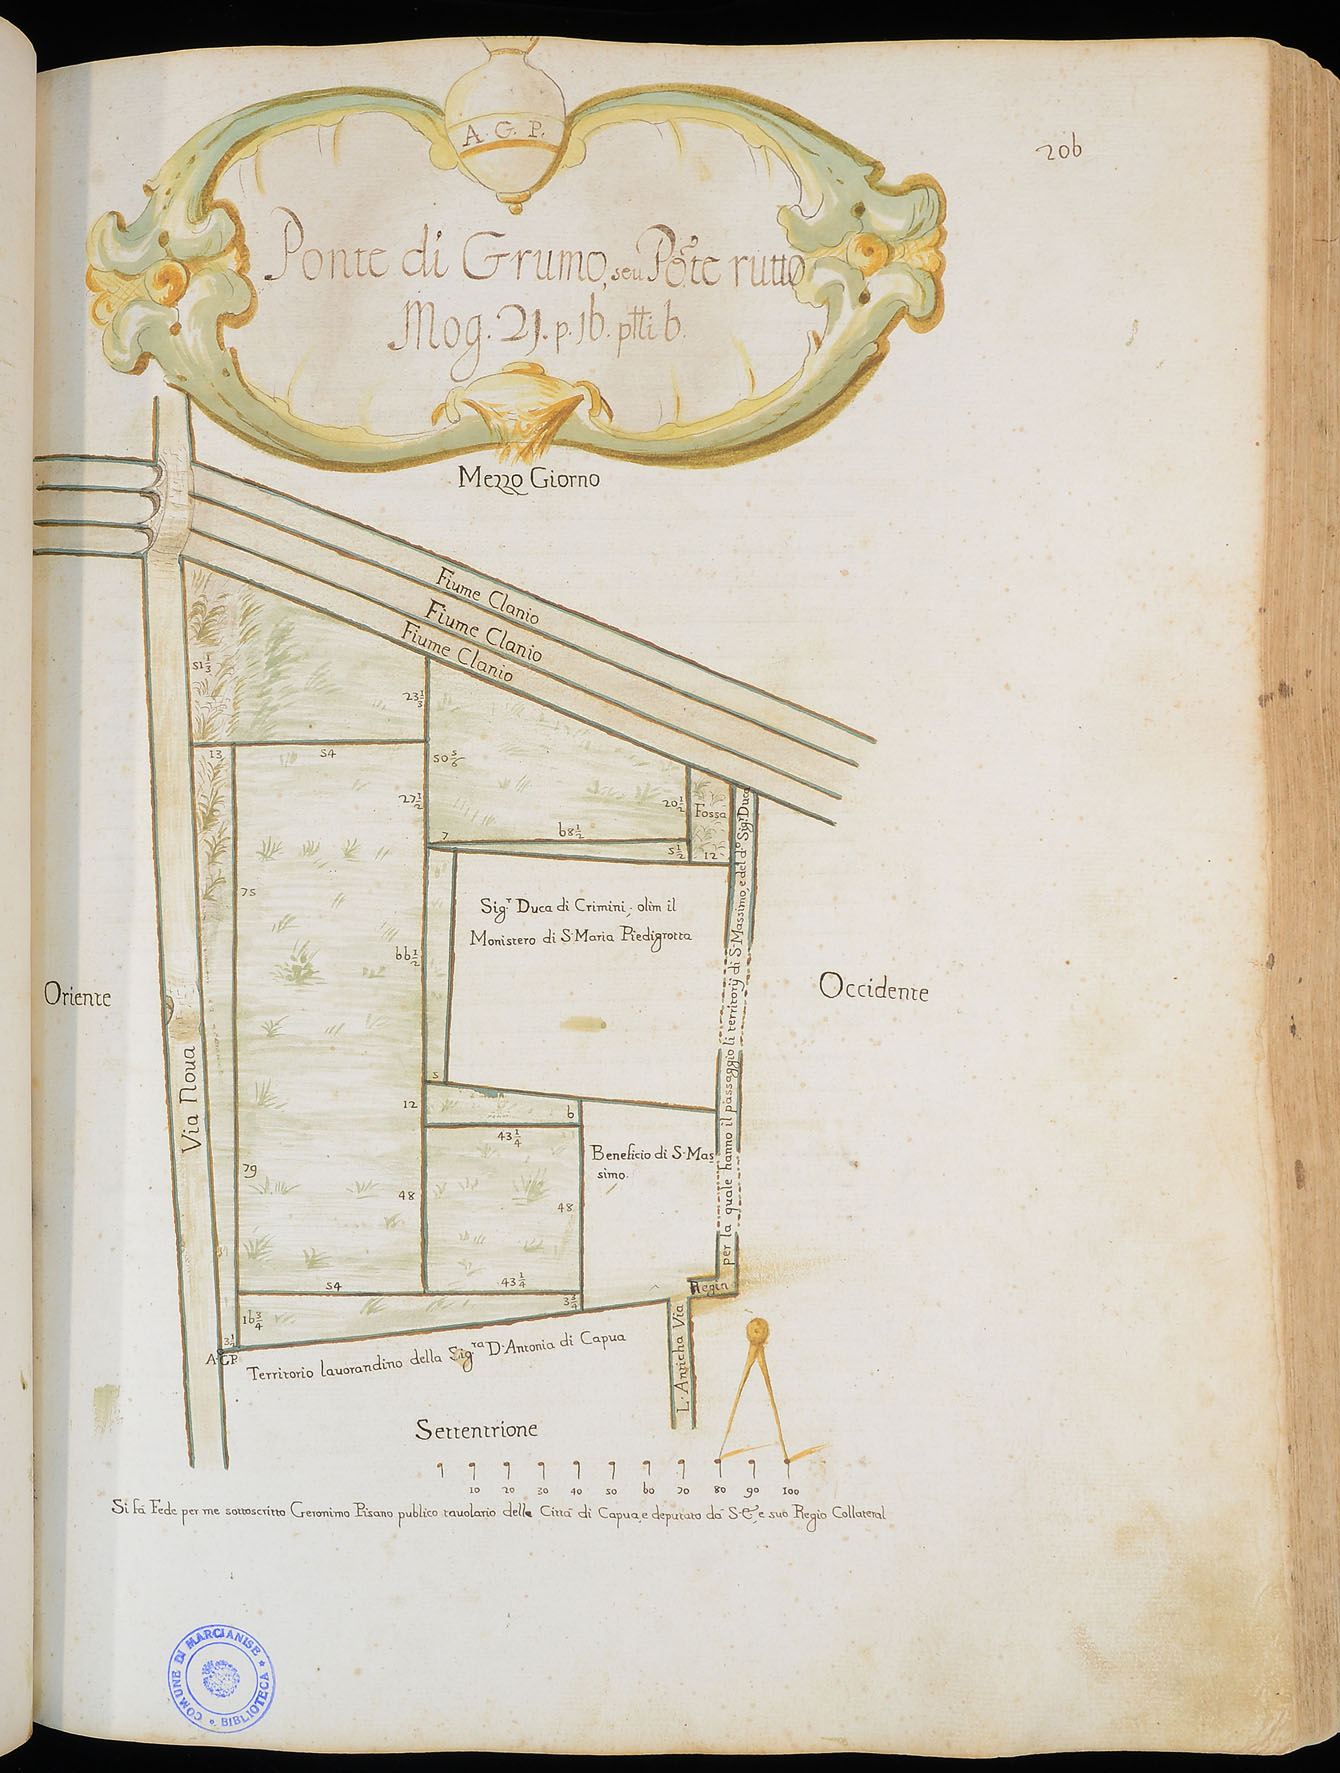 A. G. P.
206
Ponte di Grumo, seu Põte rutto
Mog. 21. p. 16. ptti 6.
Mezzo Giorno
Fiume Clanio
Fiume Clanio
Fiume Clanio
51 1/3
23 1/3
13
54
50 5/6
27 1/2
20 1/2
Fossa
7
68 1/2
5 1/2
12
75
Sigr Duca di Crimini, olim il
Monistero di S. Maria Piedigrotta
66 1/2
Oriente
Occidente
Via Noua
per la quale hanno il passaggio li territorij di S. Massimo, e del do Sigr Duca
5
12
6
43 1/4
Beneficio di S. Mas
simo.
79
48
48
54
43 1/4
3 3/4
16 3/4
3 1/2
A. G. P.
L. Anticha Via
Territorio lauorandino della Sigra D. Antonia di Capua
Settentrione
10 20 30 40 50 60 70 80 90 100
Si fà Fede per me sottoscritto Geronimo Pisano publico tauolario della Città di Capua, e deputato dà S. E. e suo Regio Collateral
COMUNE DI MARCIANISE
BIBLIOTECA